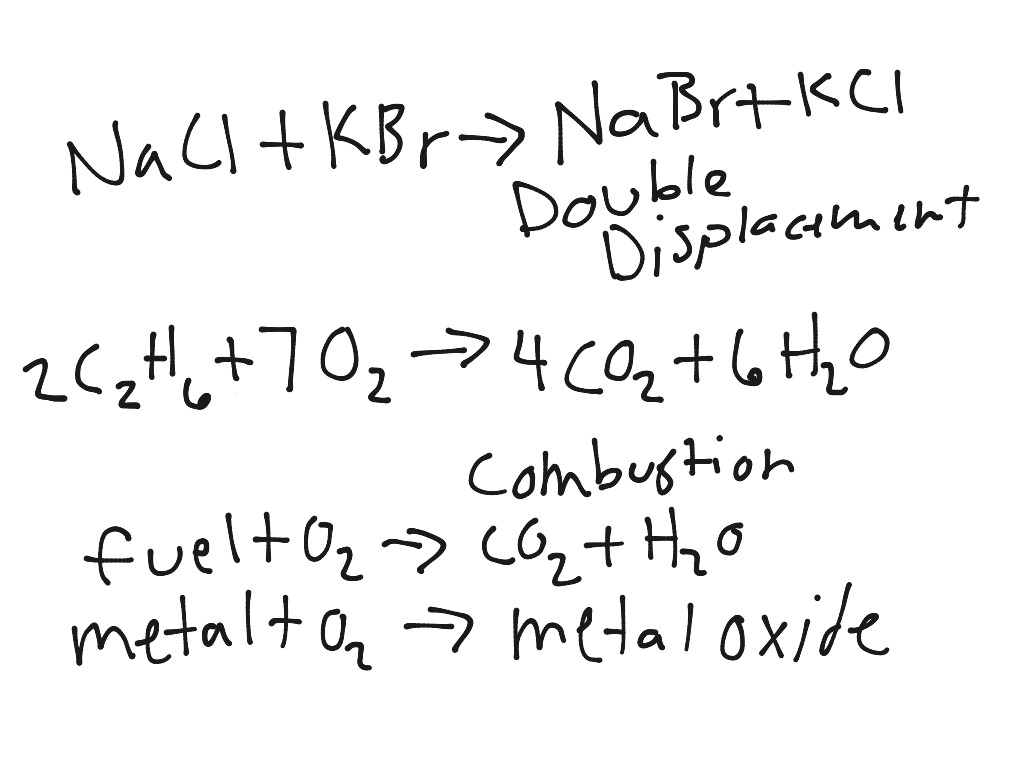 NaCl + KBr → NaBr + KCl
Double
Displacement
2C₂H₆ + 7O₂ → 4CO₂ + 6H₂O
Combustion
fuel + O₂ → CO₂ + H₂O
metal + O₂ → metal oxide